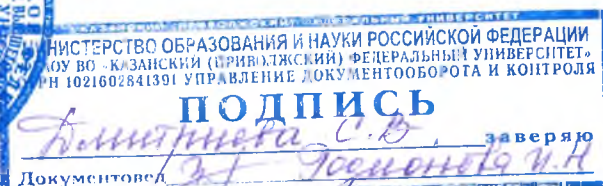 КАЗАНСКИЙ (ПРИВОЛЖСКИЙ) ФЕДЕРАЛЬНЫЙ УНИВЕРСИТЕТ
НИСТЕРСТВО ОБРАЗОВАНИЯ И НАУКИ РОССИЙСКОЙ ФЕДЕРАЦИИ
ОУ ВО «КАЗАНСКИЙ (ПРИВОЛЖСКИЙ) ФЕДЕРАЛЬНЫЙ УНИВЕРСИТЕТ»
РН 1021602841391 УПРАВЛЕНИЕ ДОКУМЕНТООБОРОТА И КОНТРОЛЯ
ПОДПИСЬ
Дмитриева С.В. заверяю
Документовед Родионова И.Н